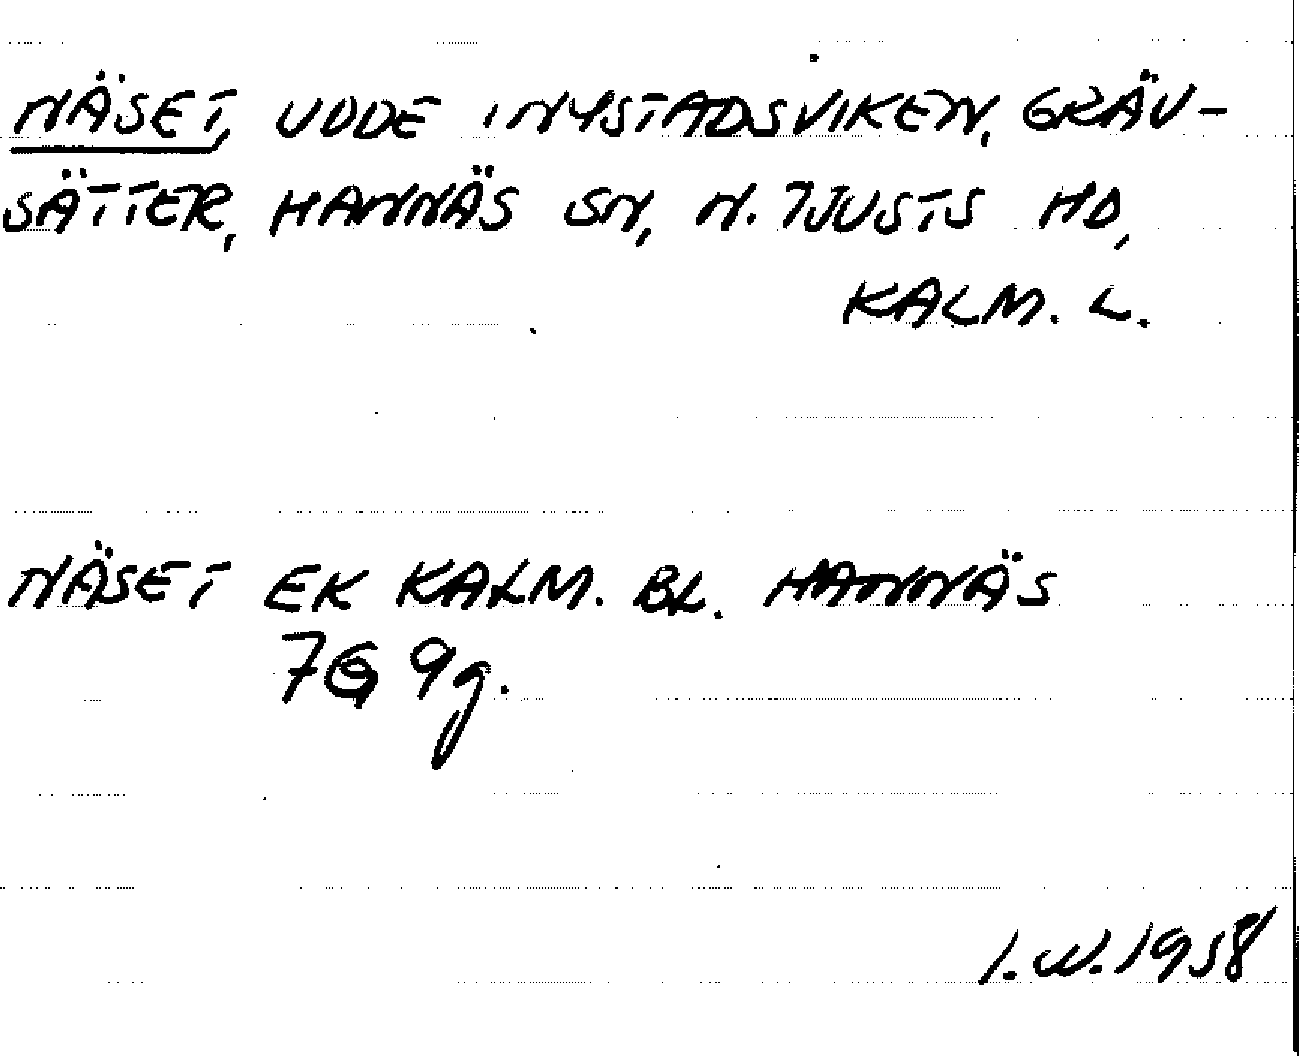 NÄSET, UDDE I NYSTADSVIKEN, GRÄV-
SÄTTER, HANNÄS SN, N. TJUSTS HD,
KALM. L.
NÄSET EK KALM. BL. HANNÄS
7G 9g.
I.W. 1958